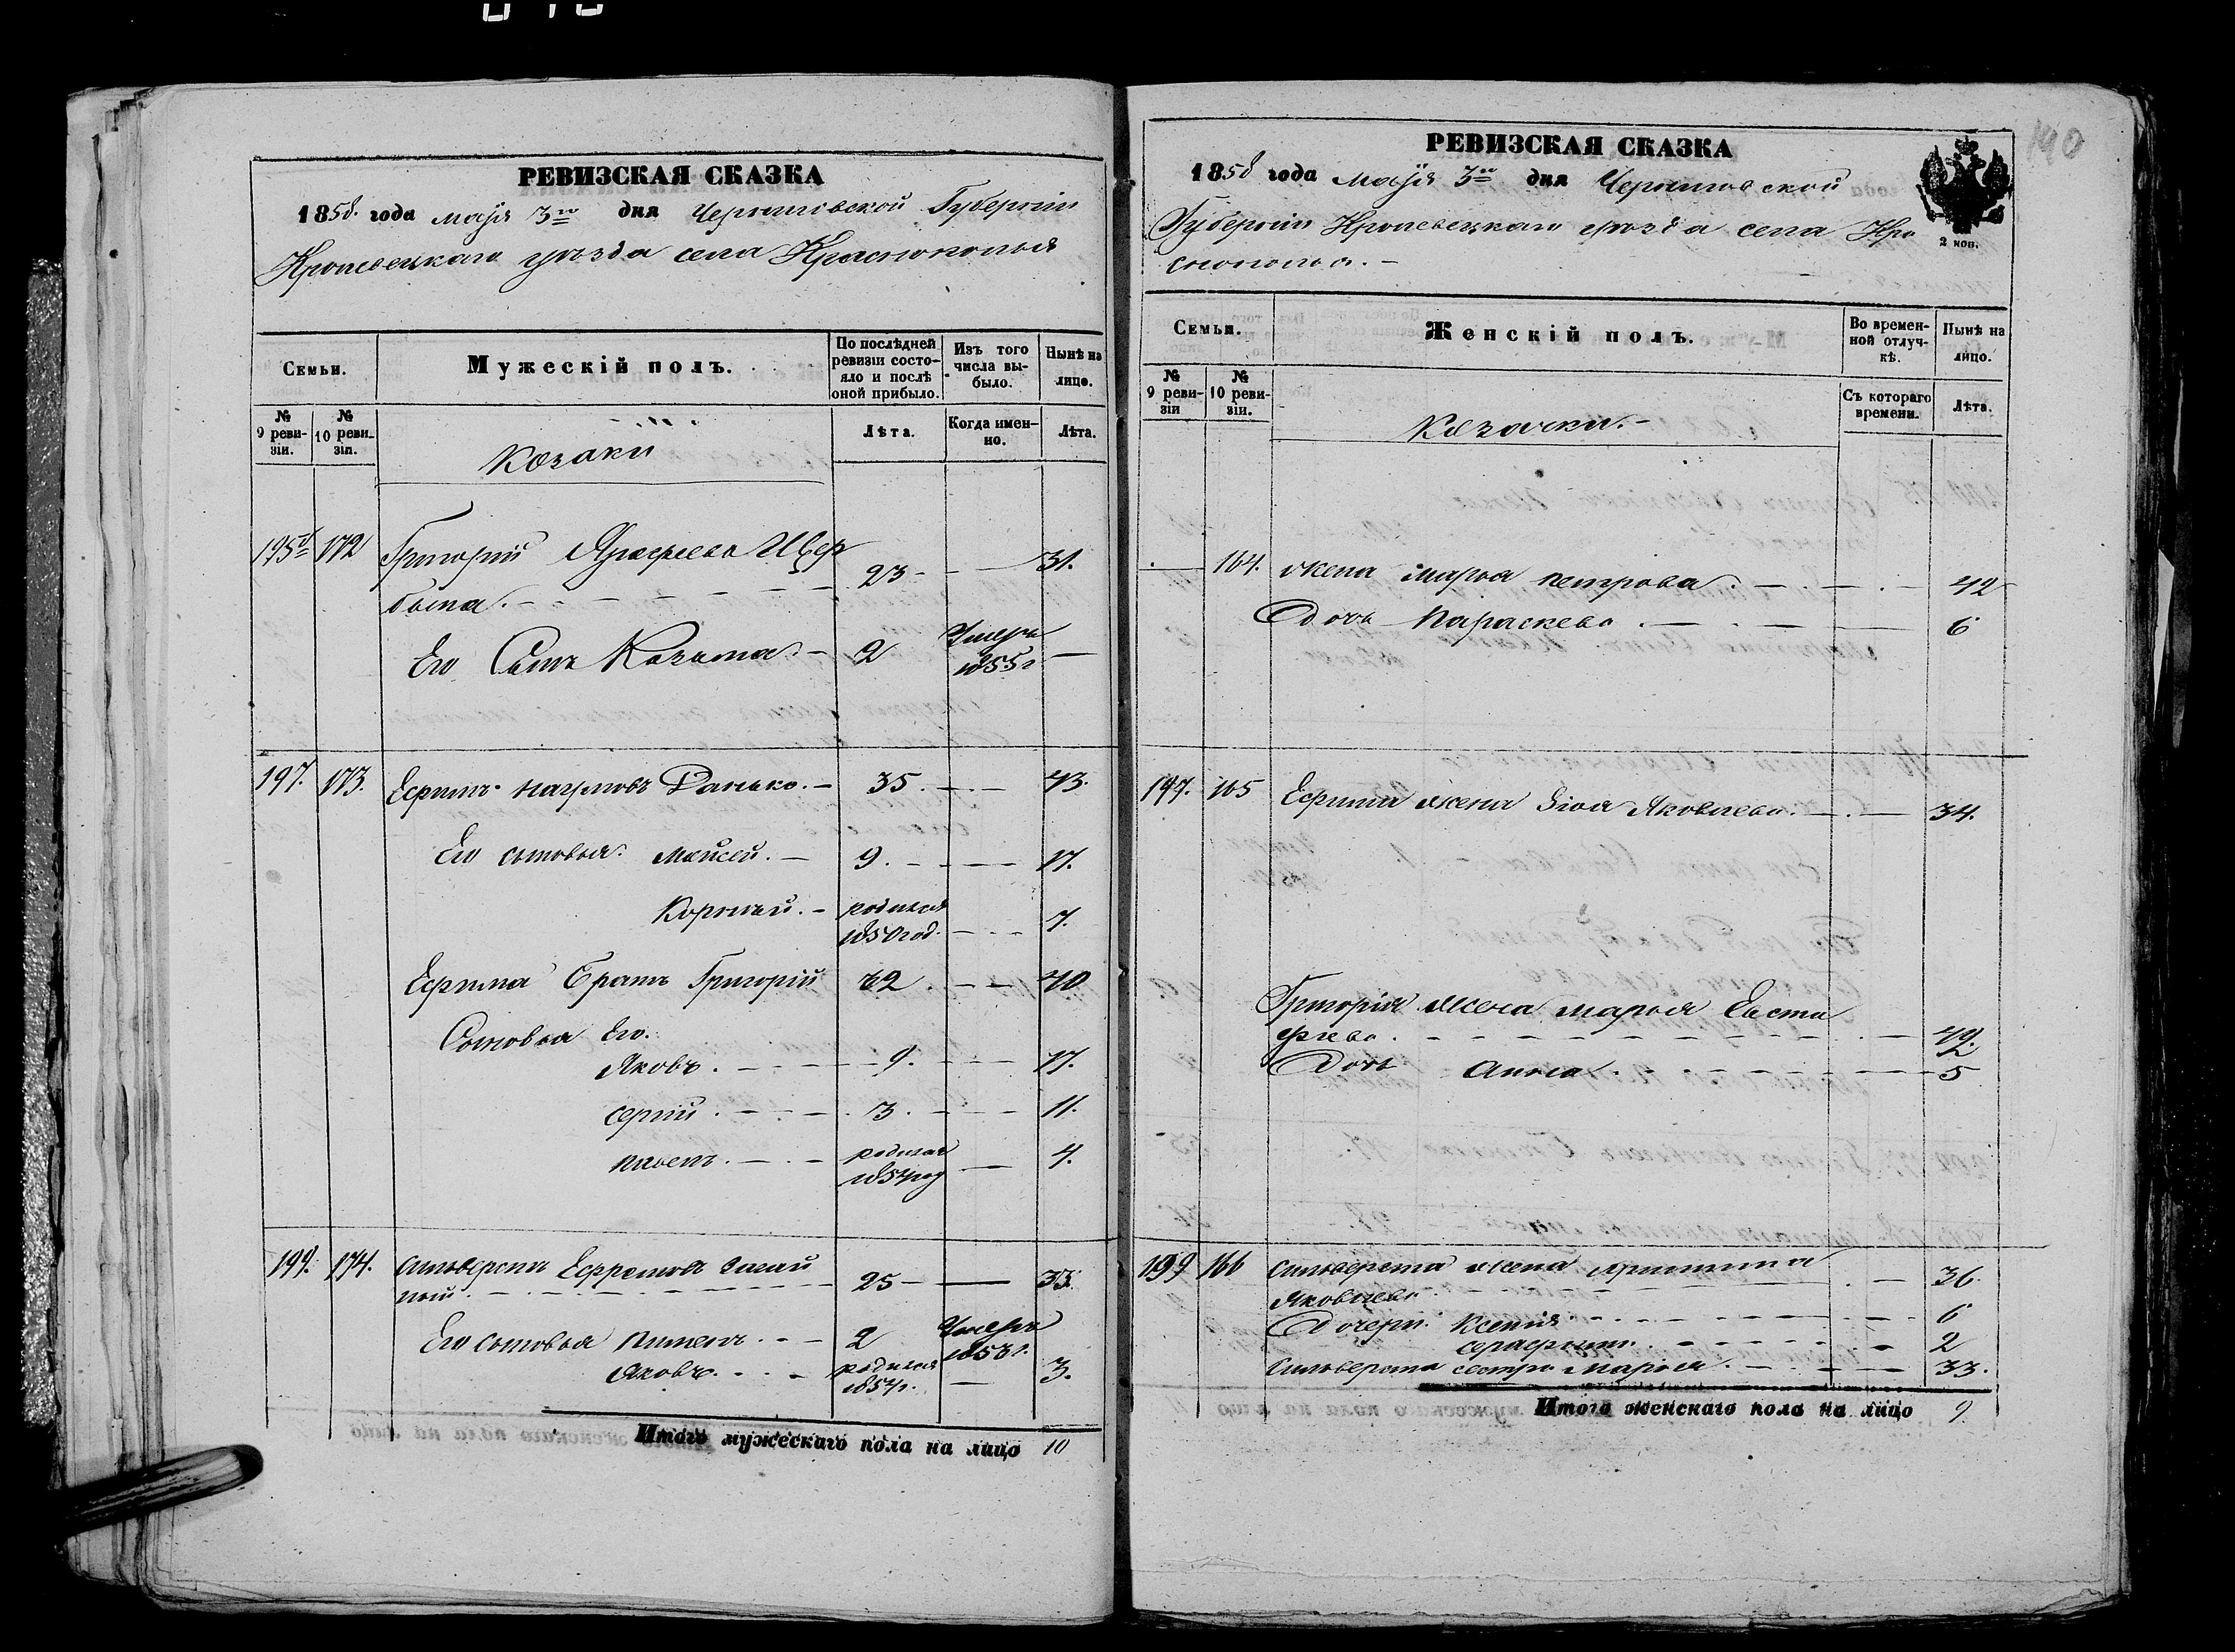 РЕВИЗСКАЯ СКАЗКА
1858. года Мая 3го дня Черниговской Губерніи
Кролевецкаго уѣзда села Краснополья
Семьи.
Мужескій полъ.
По послѣдней ревизіи состояло и послѣ оной прибыло.
Изъ того числа выбыло.
Нынѣ на лице.
№ 9 ревизіи.
№ 10 ревизіи.
Козаки
Лѣта.
Когда именно.
Лѣта.
172 Григорій Щер
бына. 23 31.
Его Сынъ Козьма 2 Умеръ 1855г
197. 173. Ефимъ Наумовъ Данько. 35. 43.
Его сыновья: Моисей. 9. 17.
Корнѣй. родился 1850 год. 7.
Ефима Братъ Григорій 32. 40
Сыновья Его.
Яковъ. 9. 17.
Сергій. 3. 11.
Павелъ. родился 1854 год 4.
199. 174. Сильверстъ Ефремовъ
25 33.
Его сыновья Пименъ. 2 Умеръ 1853г.
Яковъ. родился 1854г. 3.
Итого мужескаго пола на лицо 10
140
РЕВИЗСКАЯ СКАЗКА
1858 года Мая 3го дня Черниговской
Губерніи Кролевецкаго уѣзда села Кра
снополья.
2 коп.
Семьи.
Женскій полъ.
Во временной отлучкѣ.
Нынѣ на лицо.
№ 9 ревизіи
№ 10 ревизіи.
Козачки.
Съ котораго времени.
Лѣта.
164. жена Марья Петрова. 42
Дочь Параскева. 6
197. 165 Ефима жена Яковлева. 34.
Григорія Жена Марья Евста
фіева. 42
Дочь Анна. 5
199 166 Сильверста жена
Яковлева. 36.
Дочери: Ксенія. 6
Серафима. 2
Сильверста сестра Марья. 33.
Итого женскаго пола на лицо 9.